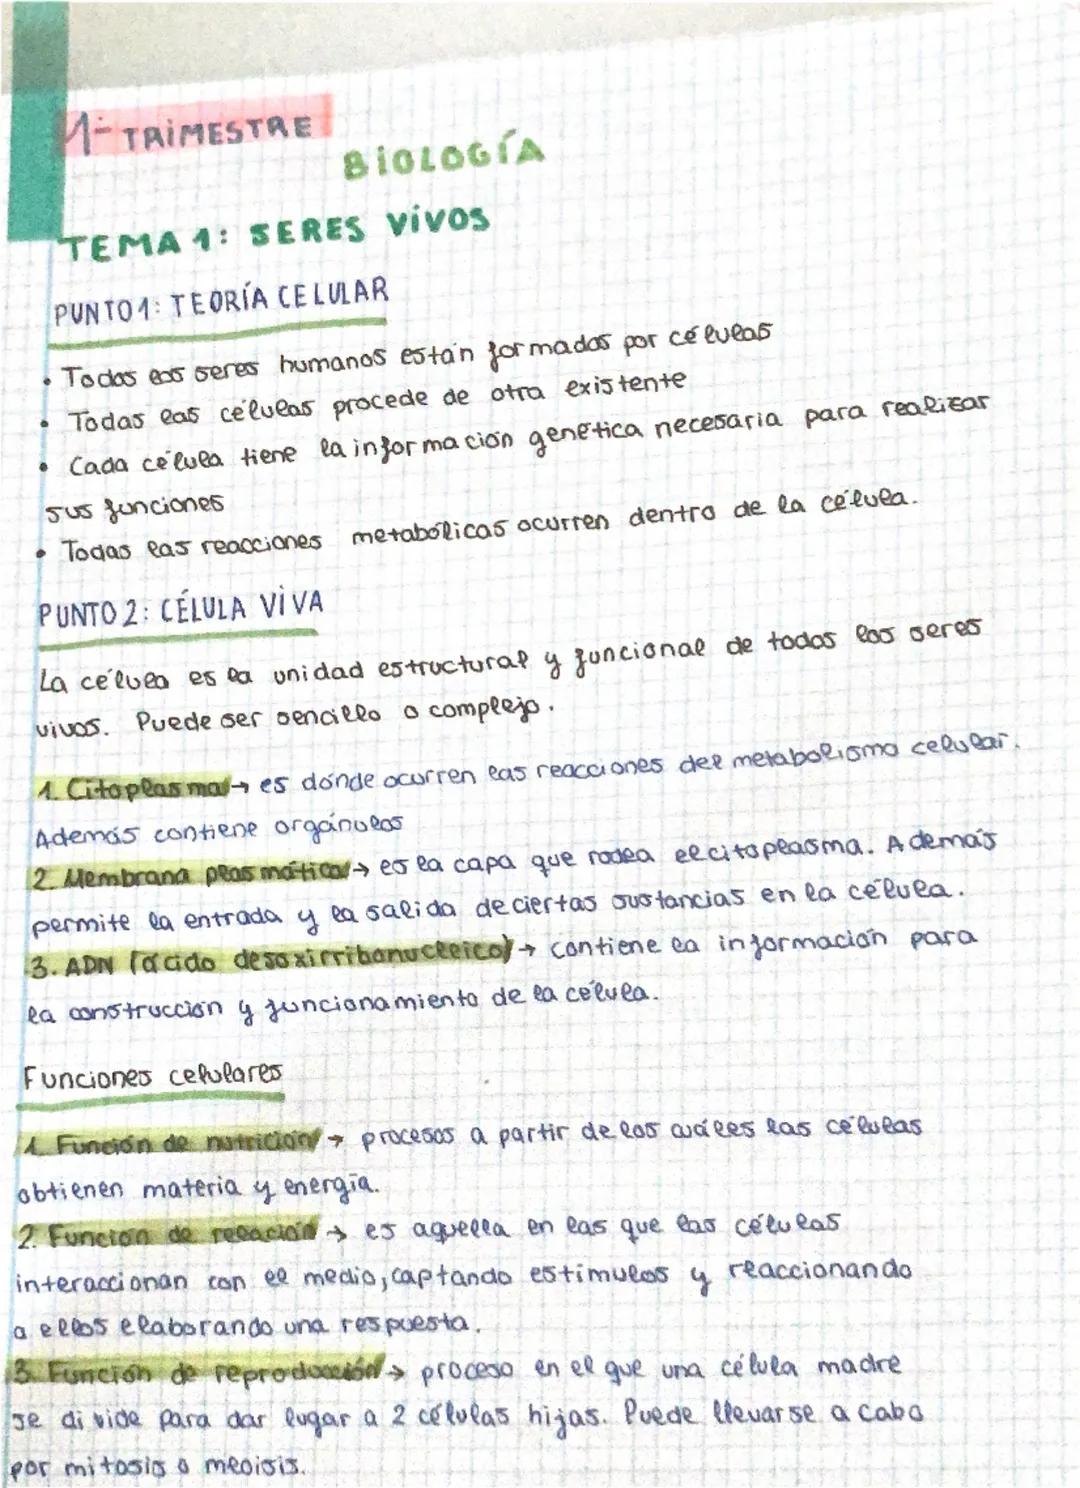 1- TRIMESTRE
BIOLOGÍA
TEMA 1: SERES VIVOS
PUNTO 1: TEORÍA CELULAR
• Todos los seres humanos están formados por células
• Todas las células procede de otra existente
• Cada célula tiene la información genética necesaria para realizar
sus funciones
• Todas las reacciones metabólicas ocurren dentro de la célula.
PUNTO 2: CÉLULA VIVA
La célula es la unidad estructural y funcional de todos los seres
vivos. Puede ser sencillo o complejo.
1. Citoplasma → es dónde ocurren las reacciones del metabolismo celular.
Además contiene orgánulos
2. Membrana plasmática → es la capa que rodea el citoplasma. Además
permite la entrada y la salida de ciertas sustancias en la célula.
3. ADN (ácido desoxirribonucleico) → contiene la información para
la construcción y funcionamiento de la célula.
Funciones celulares
1. Función de nutrición → procesos a partir de los cuáles las células
obtienen materia y energía.
2. Función de relación → es aquella en las que las células
interaccionan con el medio, captando estímulos y reaccionando
a ellos elaborando una respuesta.
3. Función de reproducción → proceso en el que una célula madre
se divide para dar lugar a 2 células hijas. Puede llevarse a cabo
por mitosis o meoisis.